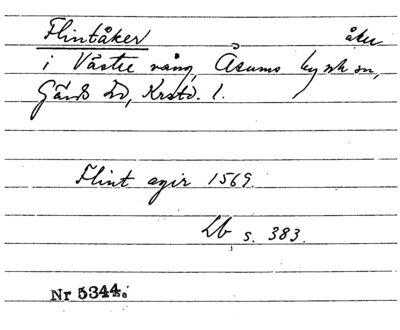 Flintåker åker
i Västre vång, Åsums by och sn,
Gärds hd, Krstd. l.
Flint agir 1569.
Lb s. 383.
Nr 5344.